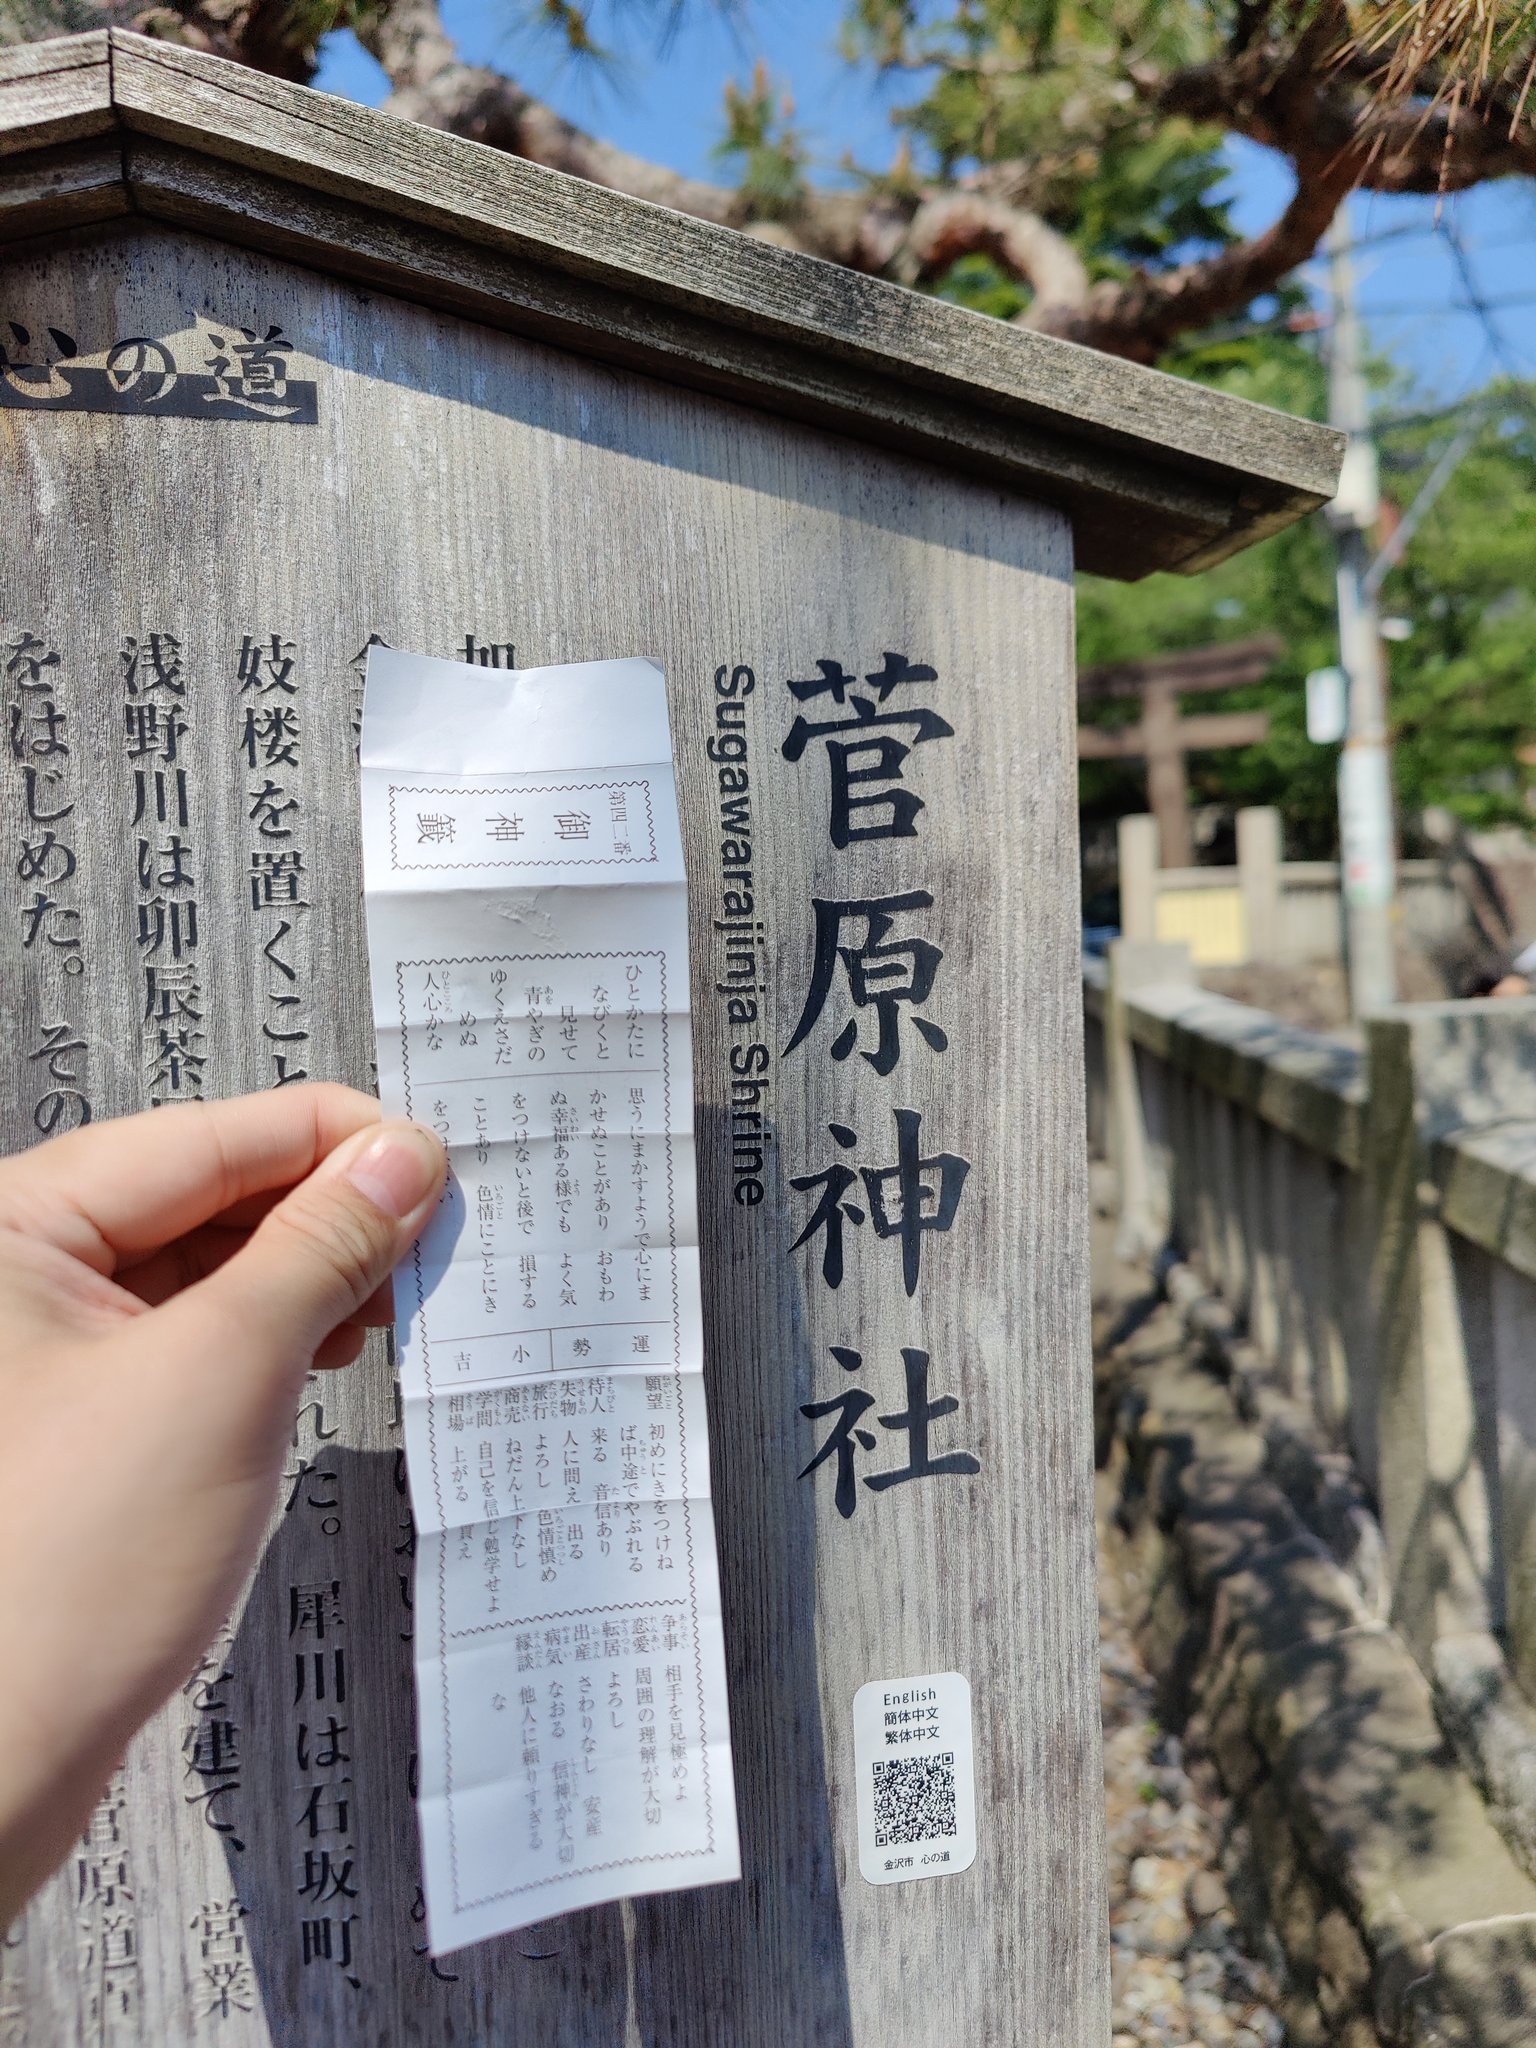 心の道
菅原神社
Sugawarajinja Shrine
妓楼を置くこと
浅野川は卯辰茶
をはじめた。その
れた。犀川は石坂町、
を建て、営業
菅原道
第四二番
御神籤
ひとかたに
なびくと
見せて
青やぎの
ゆくえさだ
めぬ
人心かな
思うにまかすようで心にま
かせぬことがあり おもわ
ぬ幸福ある様でも よく気
をつけないと後で 損する
ことあり 色情にことにき
をつけ
運勢
小吉
願望 初めにきをつけね
ば中途でやぶれる
待人 来る 音信あり
失物 人に問え 出る
旅行 よろし 色情慎め
商売 ねだん上下なし
学問 自己を信じ勉学せよ
相場 上がる 買え
争事 相手を見極めよ
恋愛 周囲の理解が大切
転居 よろし
出産 さわりなし 安産
病気 なおる 信神が大切
縁談 他人に頼りすぎる
な
English
簡体中文
繁体中文
金沢市 心の道